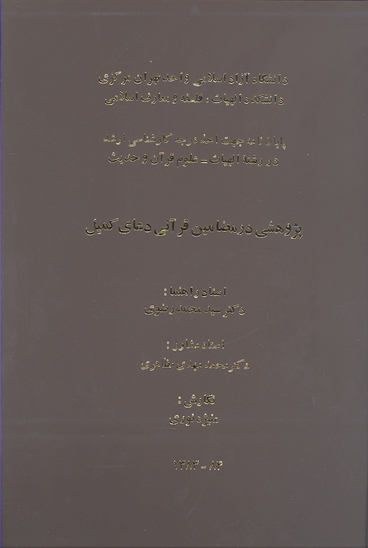 دانشگاه آزاد اسلامی واحد تهران مرکزی
دانشکده الهیات ، فلسفه و معارف اسلامی
پایان نامه جهت اخذ درجه کارشناسی ارشد
در رشته الهیات - علوم قرآن و حدیث
پژوهشی در مضامین قرآنی دعای کمیل
استاد راهنما :
دکتر سید محمد رضوی
استاد مشاور :
دکتر محمد مهدی مظاهری
نگارش :
نوری
۱۳۸۳-۸۴